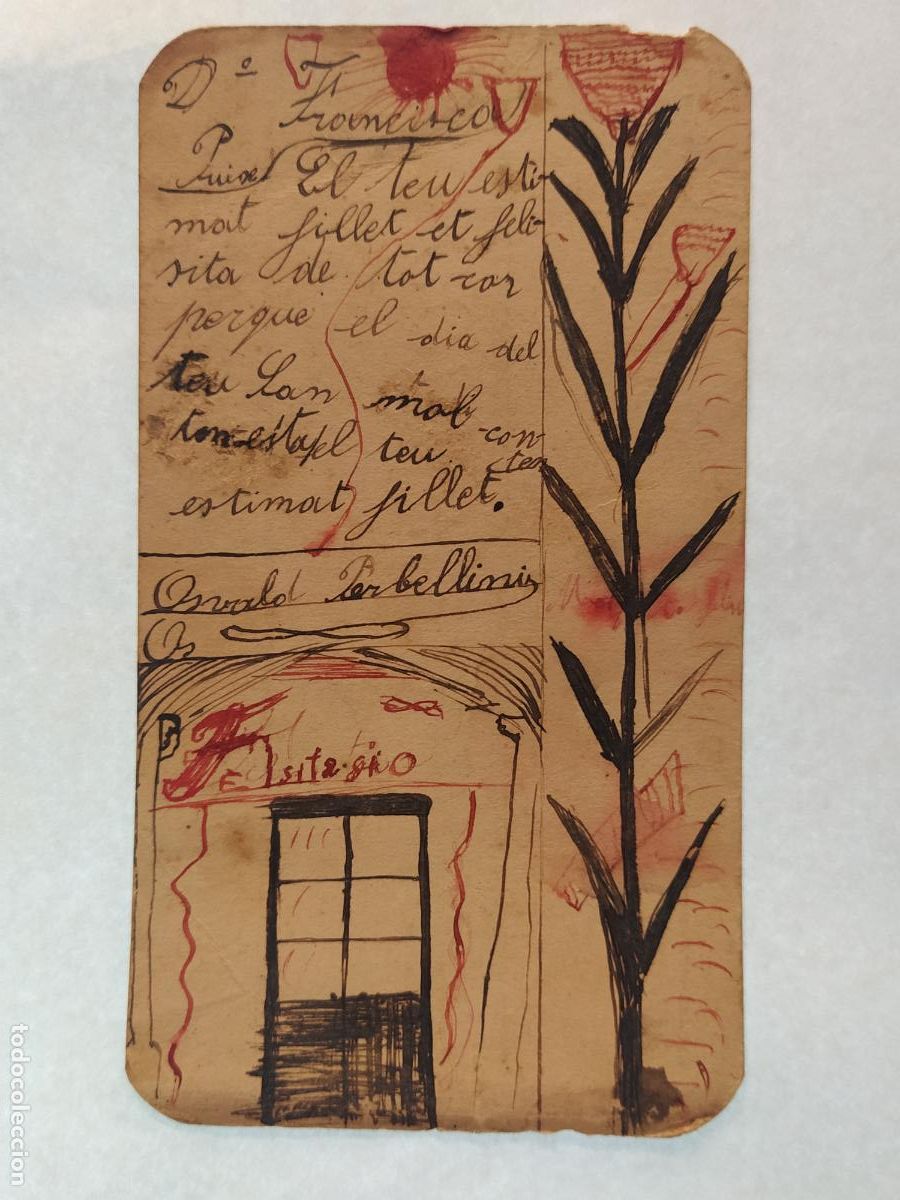 Dº Francisco
Puise El teu esti-
mat fillet et feli-
sita de tot cor
perque el dia del
teu San mol
con-
ten
esta, el teu
estimat fillet.
Osvald Perbellinis
Os
Felsita.sio
todocoleccion